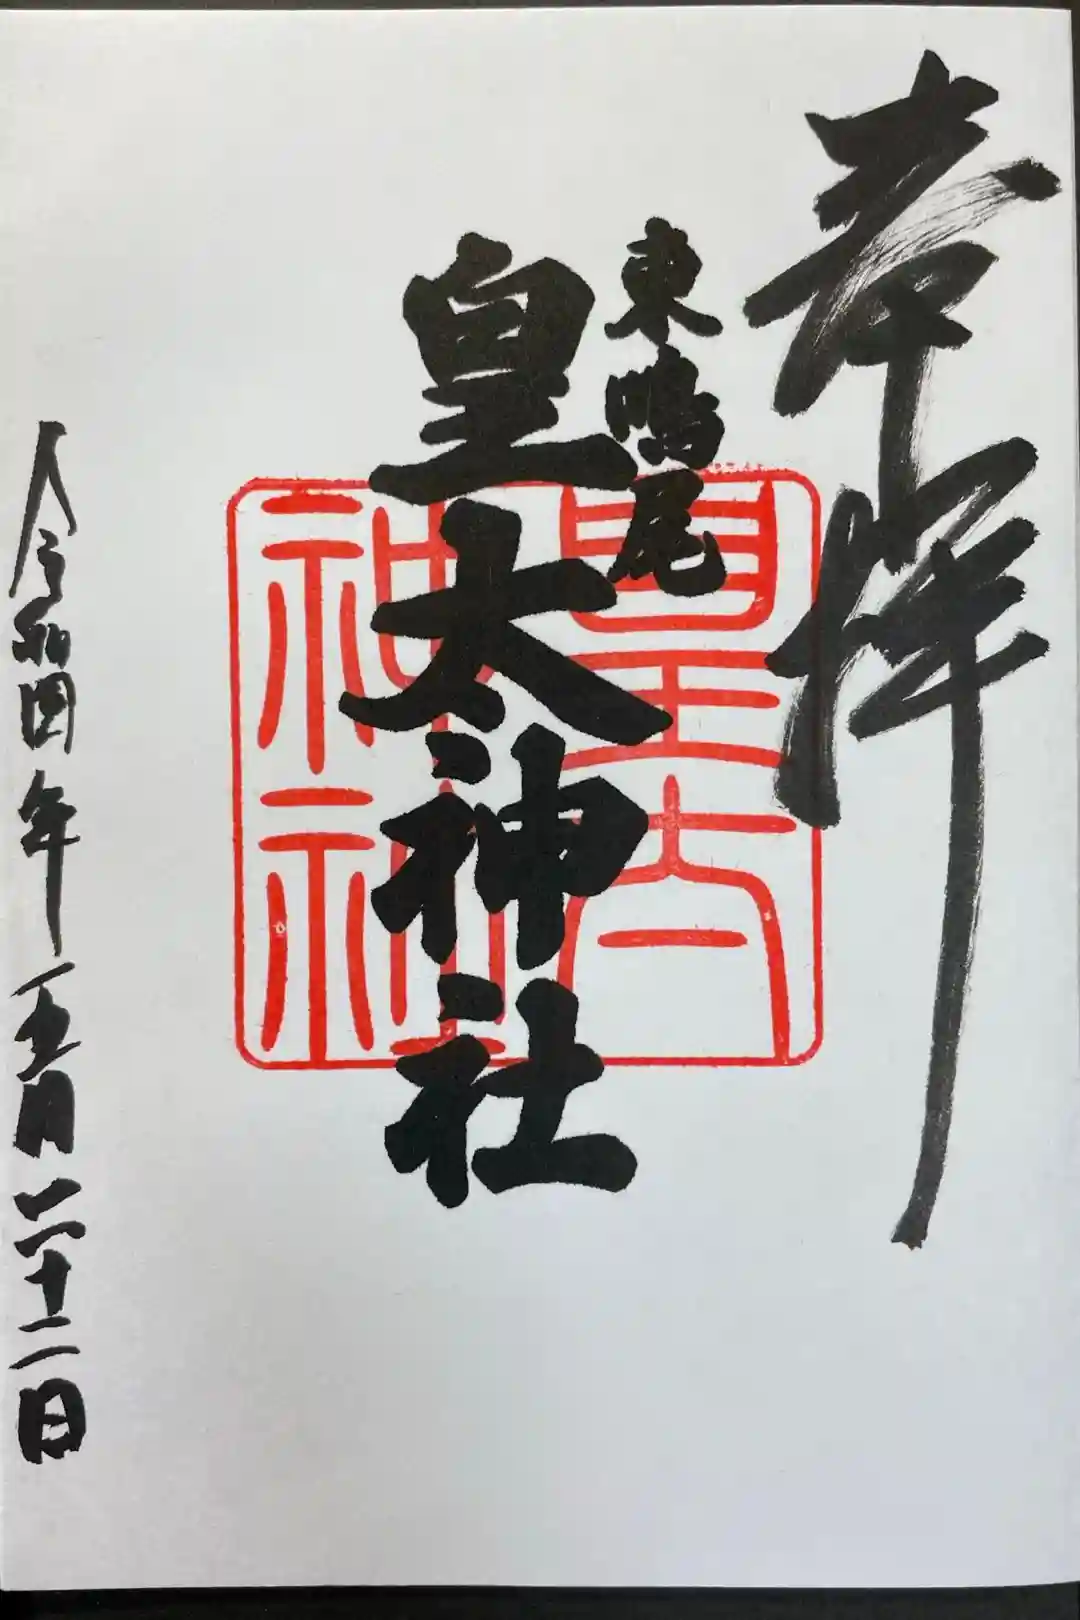 奉拝
東鳴尾
皇太神社
皇太
神社
令和四年五月二十二日